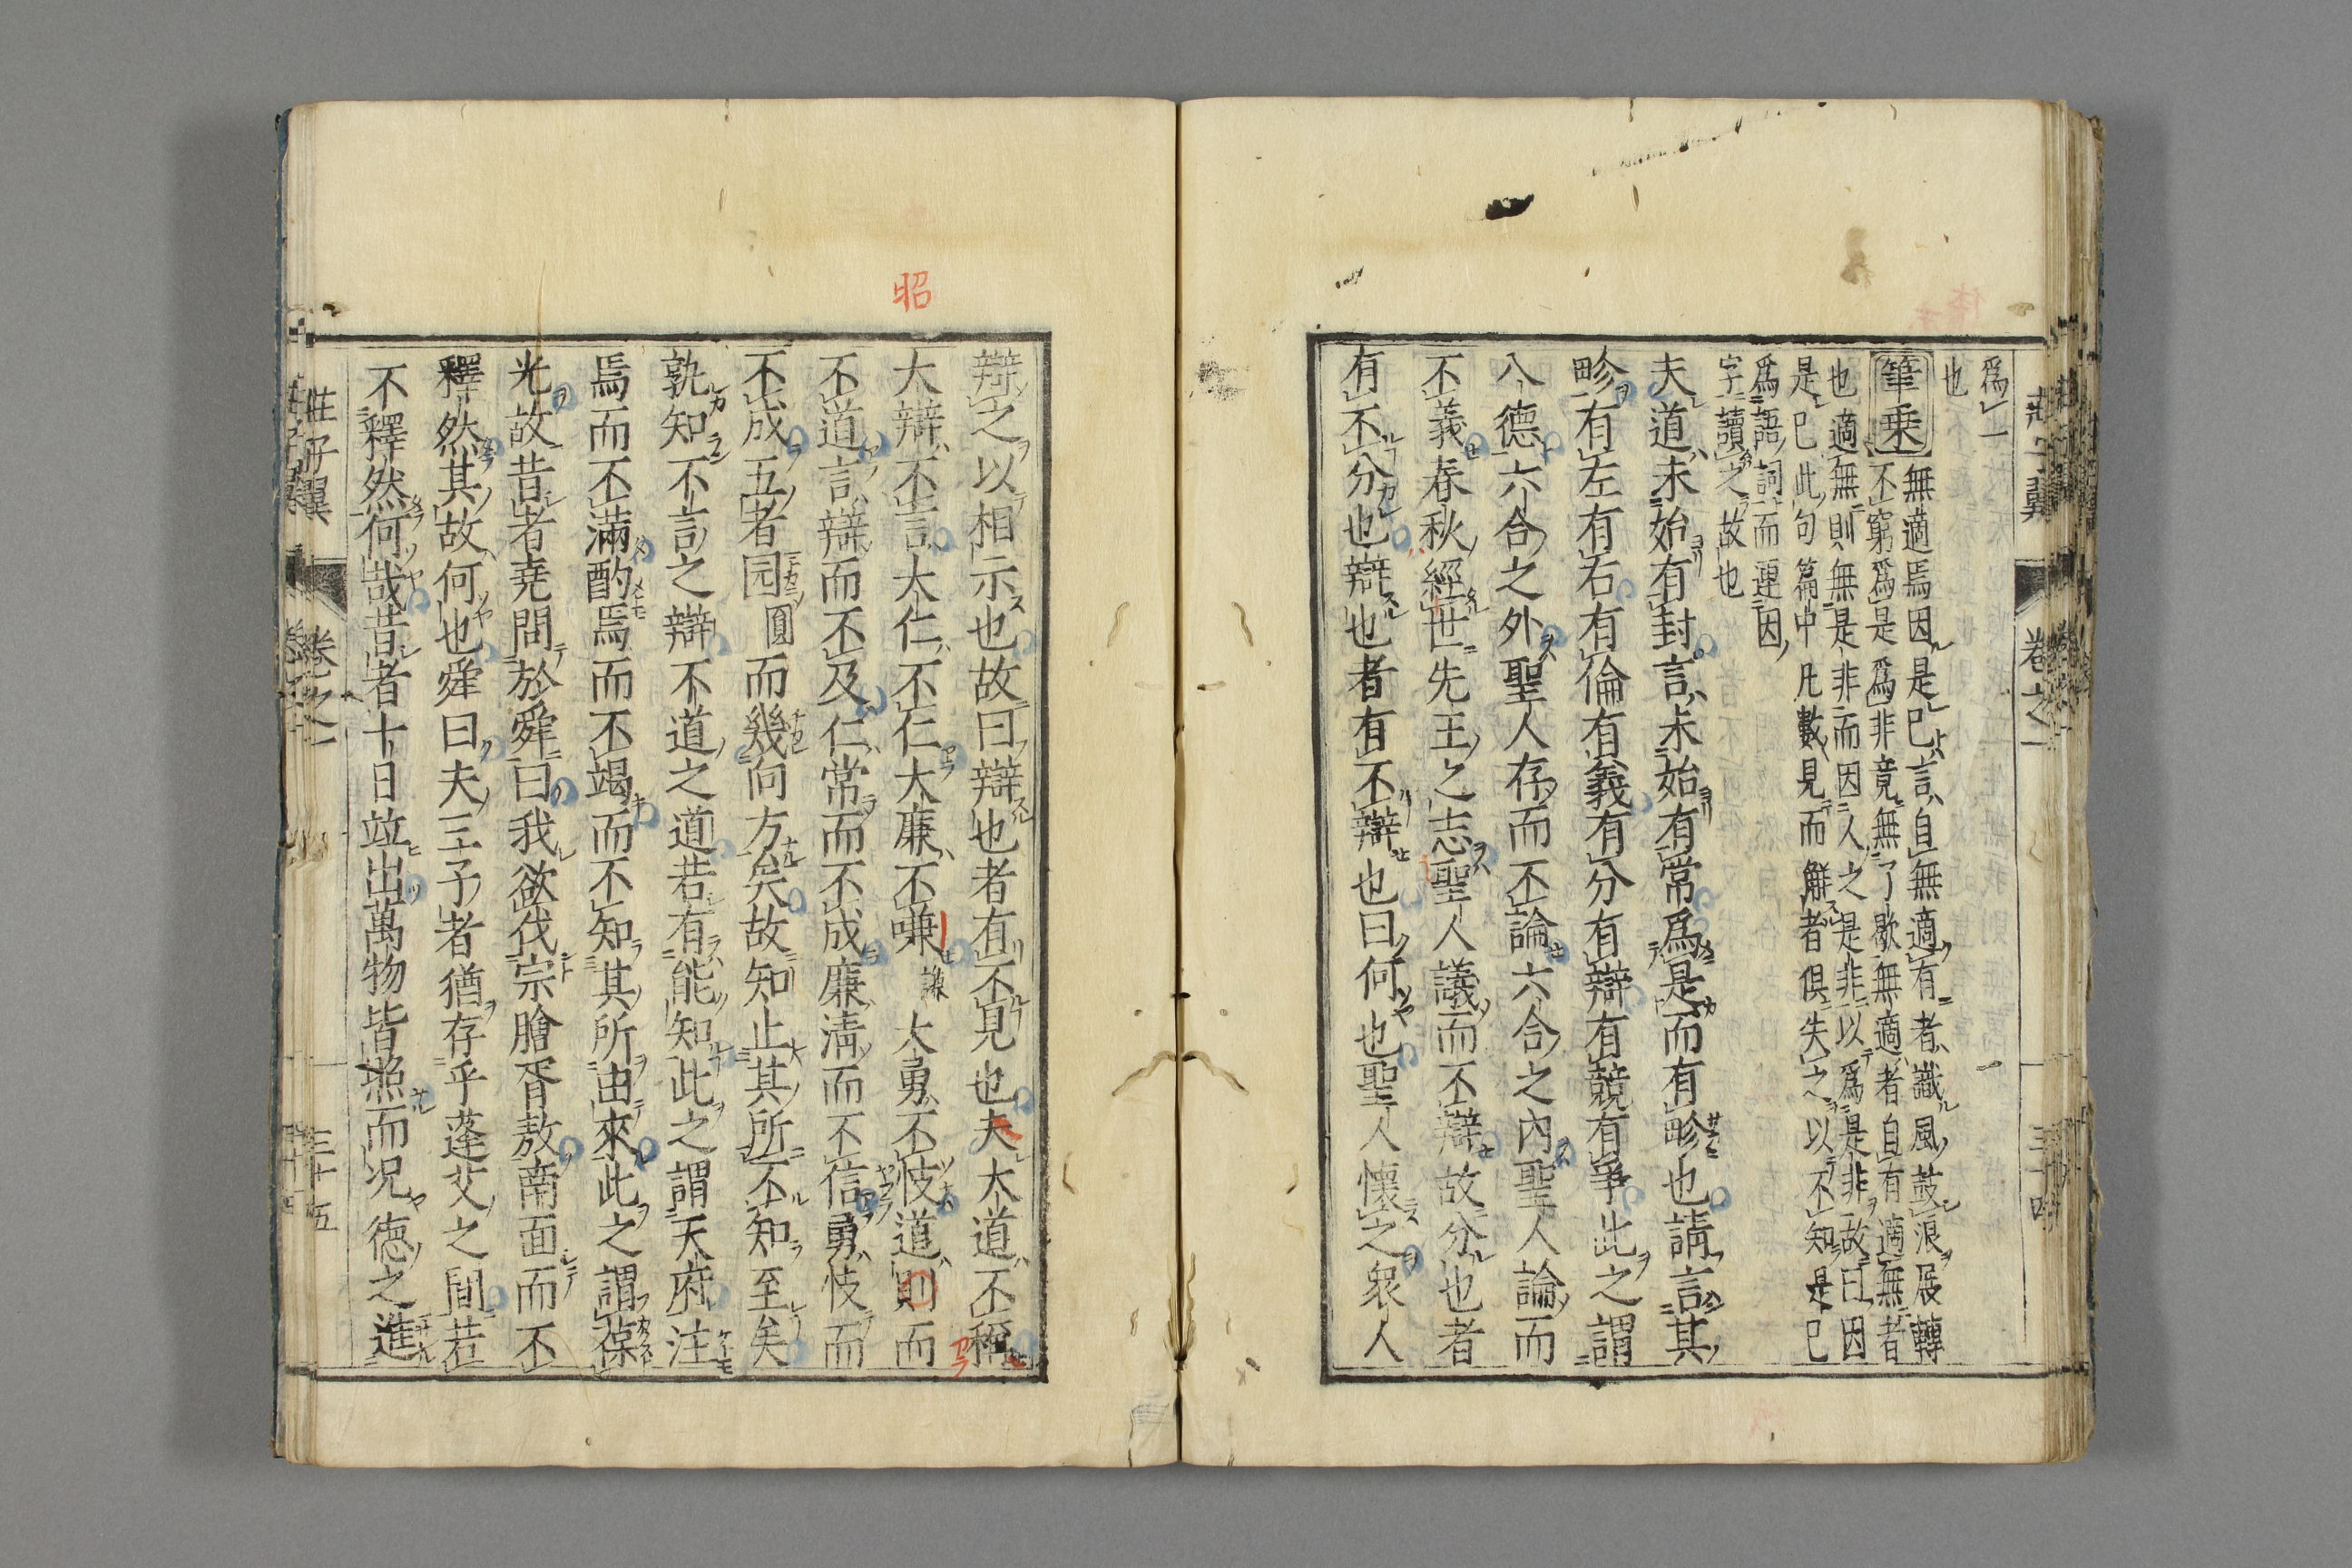 爲一
也
筆乗
無適焉因是已言自無適有者識風鼓浪展轉
不窮爲是爲非竟無了歇無適者自有適無者
也適無則無是非而因人之是非以爲是非故曰因
是已此句篇中凡數見而解者倶失之以不知是已
爲語詞而連因
字讀之故也
夫道未始有封言未始有常爲是而有畛也請言其
畛有左有右有倫有義有分有辯有競有爭此之謂
八德六合之外聖人存而不論六合之內聖人論而
不義春秋經世先王之志聖人議而不辯故分也者
有不分也辯也者有不辯也曰何也聖人懷之衆人
莊子翼 卷之一 三十四
辯之以相示也故曰辯也者有不見也夫大道不稱
大辯不言大仁不仁大廉不嗛謙大勇不忮道則而
不道言辯而不及仁常而不成廉淸而不信勇忮而
不成五者园圓而幾向方矣故知止其所不知至矣
孰知不言之辯不道之道若有能知此之謂天府注
焉而不滿酌焉而不竭而不知其所由來此之謂葆
光故昔者堯問於舜曰我欲伐宗膾胥敖南面而不
釋然其故何也舜曰夫三子者猶存乎蓬艾之間若
不釋然何哉昔者十日竝出萬物皆照而况德之進
莊子翼 卷之一 三十五
昭